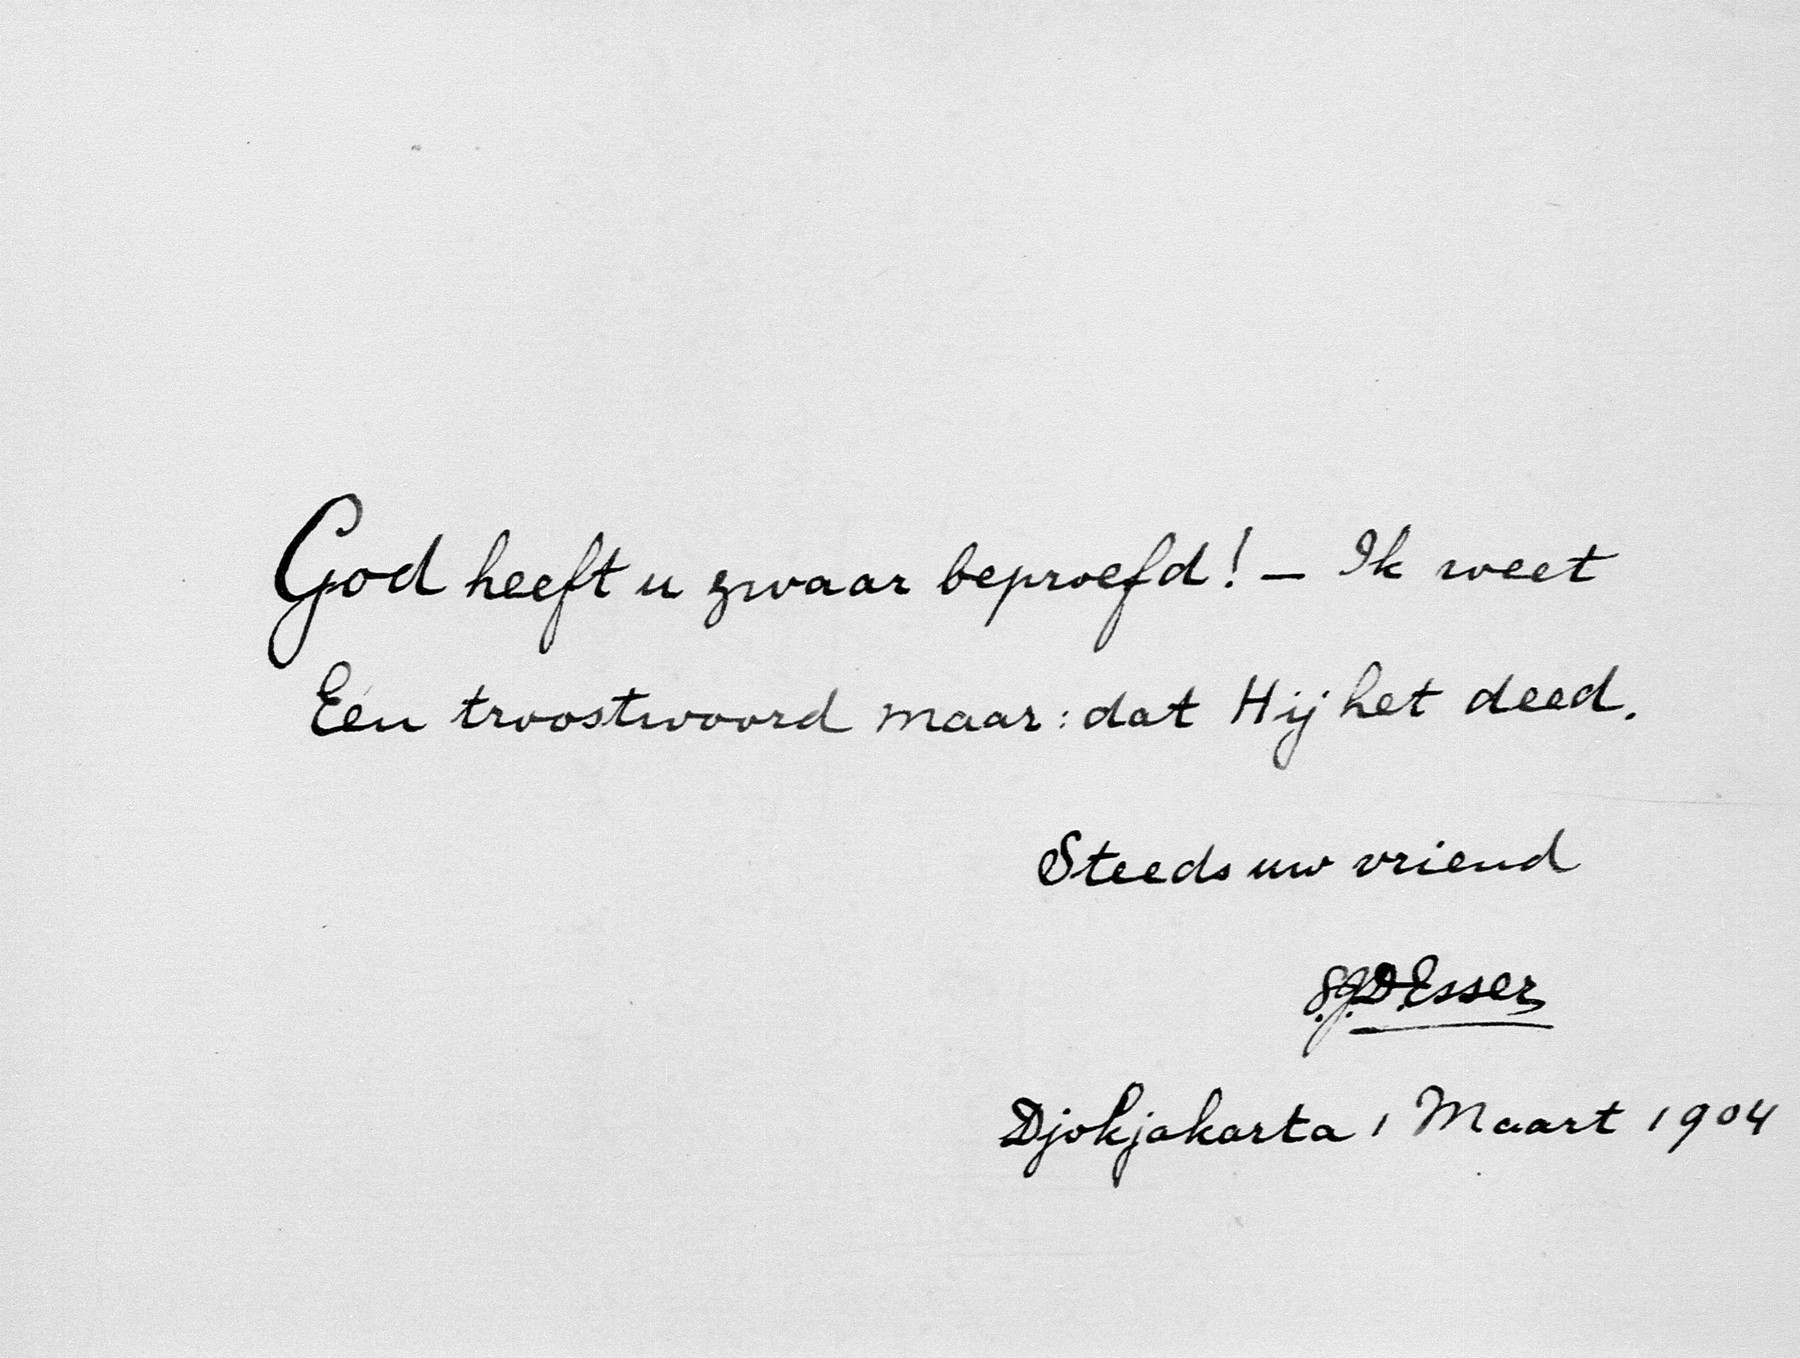 God heeft u zwaar beproefd! — Ik weet
Eén troostwoord maar: dat Hij het deed.
Steeds uw vriend
S.J.D.Esser
Djokjakarta 1 Maart 1904